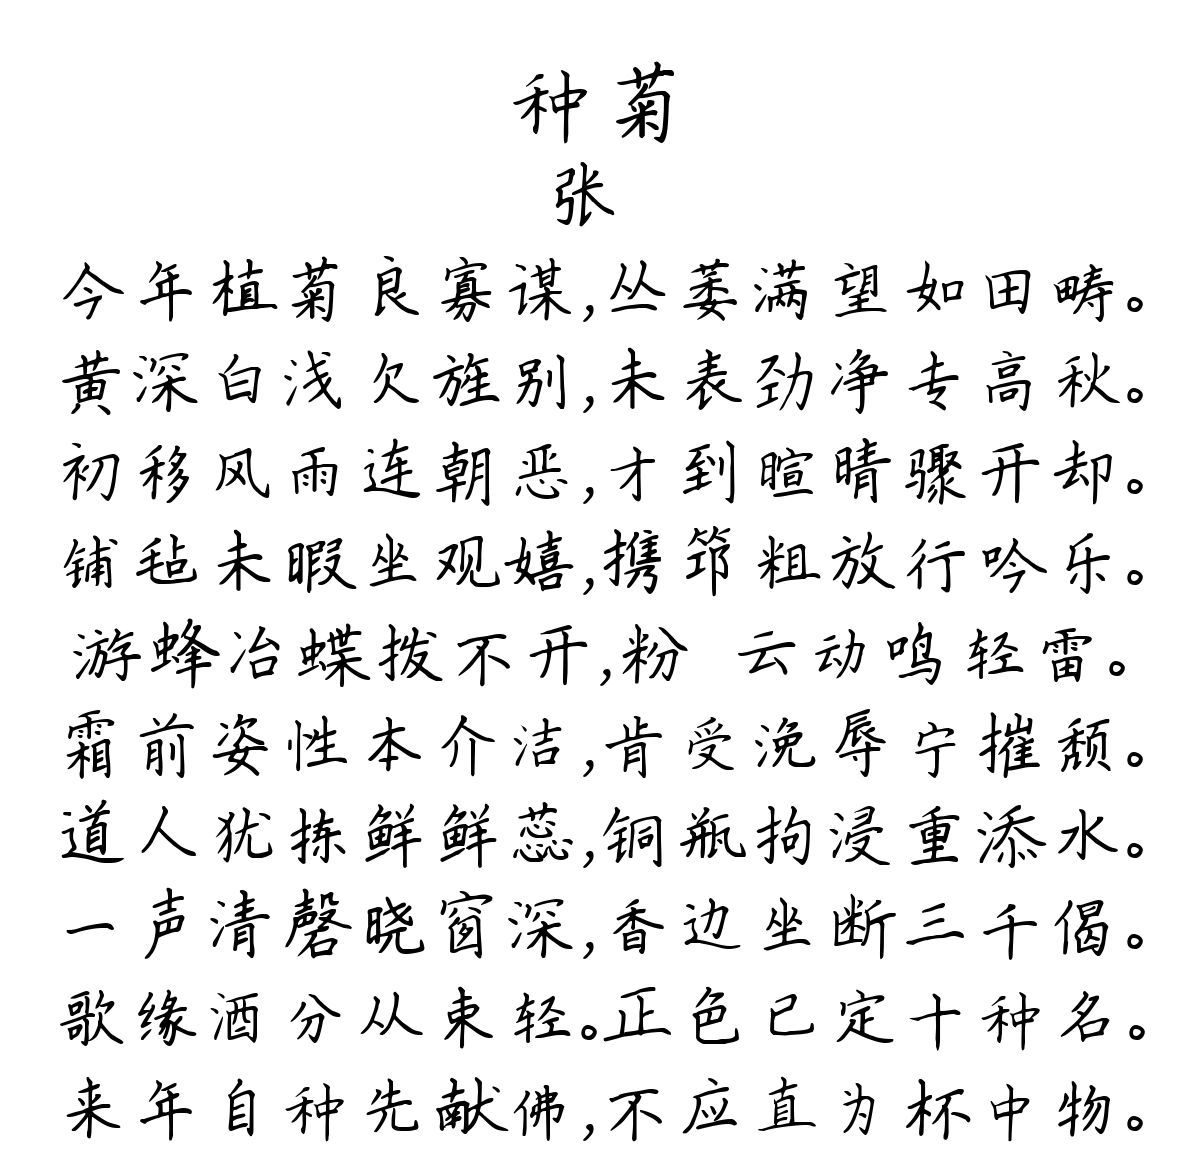 种菊
张
今年植菊良寡谋,丛萎满望如田畴。
黄深白浅欠旌别,未表劲净专高秋。
初移风雨连朝恶,才到暄晴骤开却。
铺毡未暇坐观嬉,携筇粗放行吟乐。
游蜂冶蝶拨不开,粉 云动鸣轻雷。
霜前姿性本介洁,肯受浼辱宁摧颓。
道人犹拣鲜鲜蕊,铜瓶拘浸重添水。
一声清磬晓窗深,香边坐断三千偈。
歌缘酒分从束轻。正色已定十种名。
来年自种先献佛,不应直为杯中物。